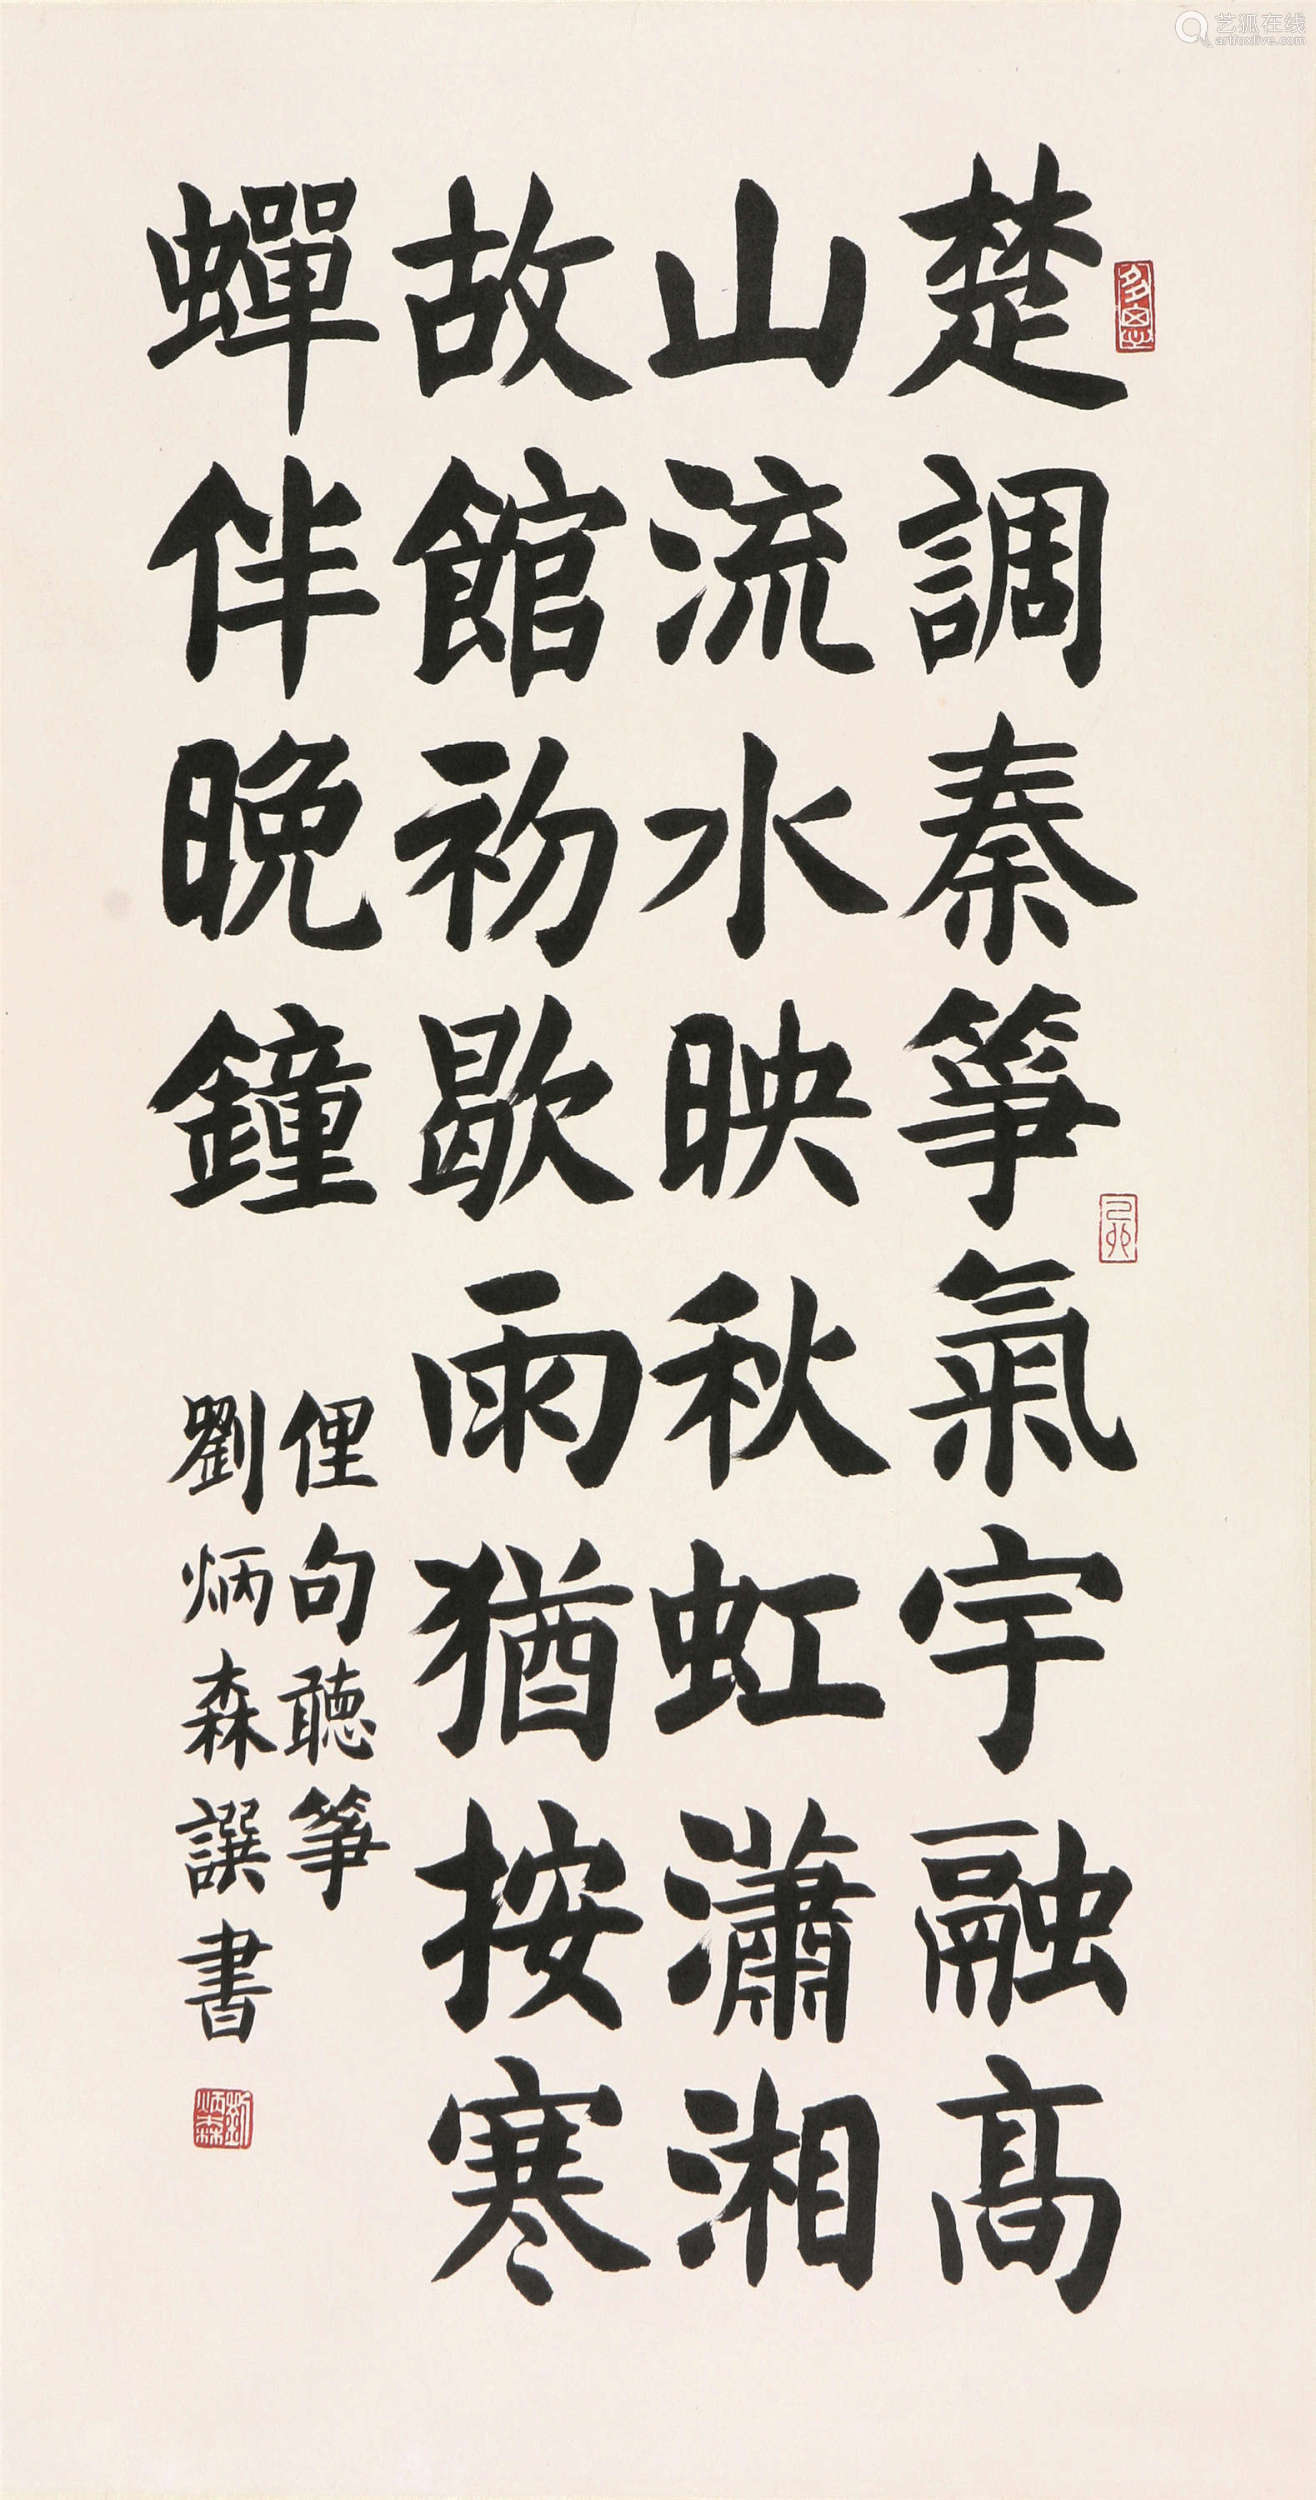 楚調秦箏氣宇融高
山流水映秋虹瀟湘
故館初歇雨猶按寒
蟬伴晚鐘
俚句聽箏
劉炳森譔書
劉炳森
己卯
艺狐在线
artfoxlive.com